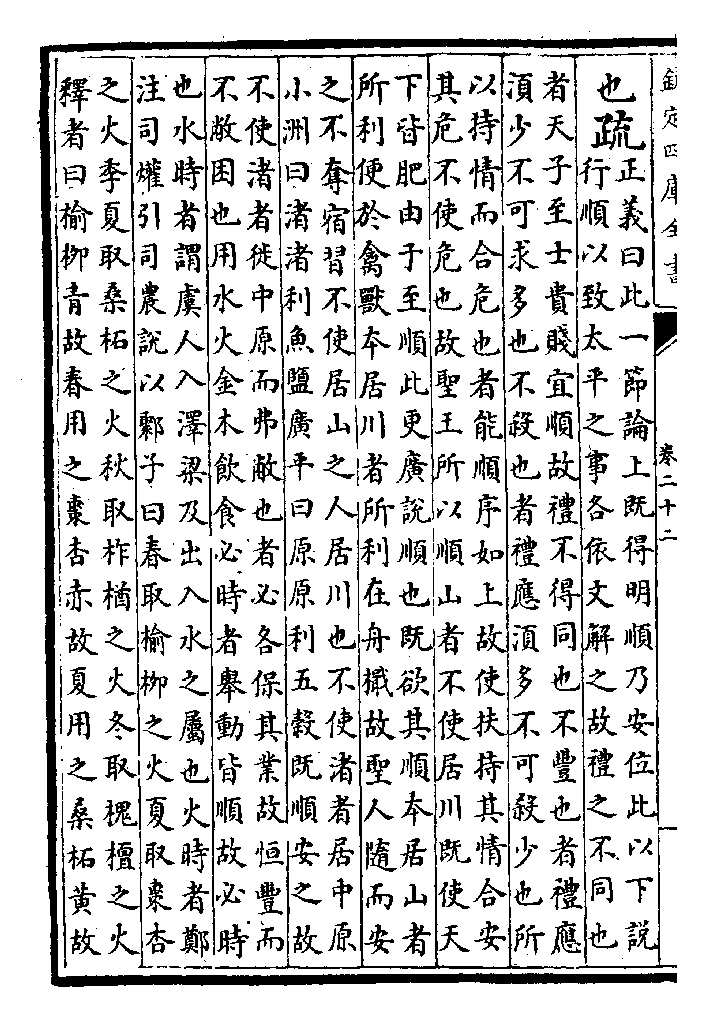 欽定四庫全書
卷二十二
也疏
正義曰此一節論上既得明順乃安位此以下說
行順以致太平之事各依文解之故禮之不同也
者天子至士貴賤宜順故禮不得同也不豐也者禮應
湏少不可求多也不殺也者禮應湏多不可殺少也所
以持情而合危也者能順序如上故使扶持其情合安
其危不使危也故聖王所以順山者不使居川既使天
下皆肥由于至順此更廣說順也既欲其順本居山者
所利便於禽獸本居川者所利在舟檝故聖人隨而安
之不奪宿習不使居山之人居川也不使渚者居中原
小洲曰渚渚利魚鹽廣平曰原原利五穀既順安之故
不使渚者徙中原而弗敝也者必各保其業故恒豐而
不敝困也用水火金木飲食必時者舉動皆順故必時
也水時者謂虞人入澤梁及出入水之屬也火時者鄭
注司爟引司農說以鄹子曰春取榆柳之火夏取棗杏
之火季夏取桑柘之火秋取柞楢之火冬取槐檀之火
釋者曰榆柳青故春用之棗杏赤故夏用之桑柘黄故